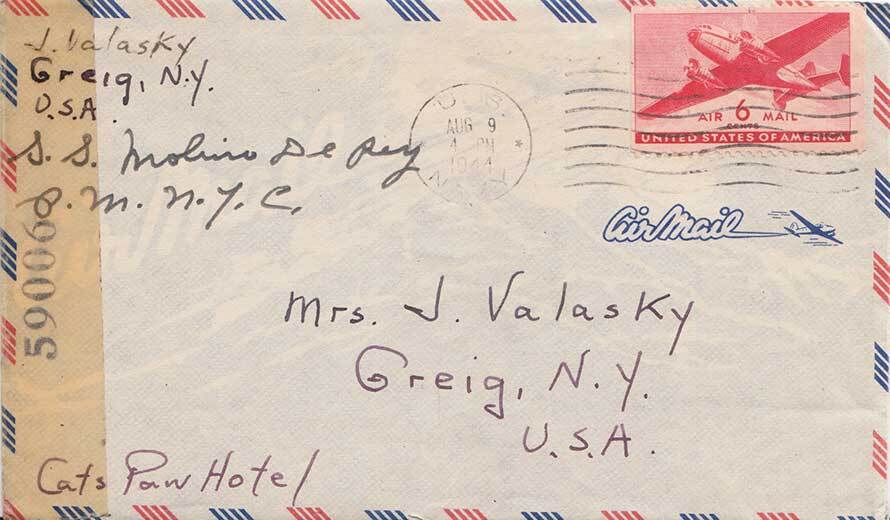 J. Valasky
Greig, N.Y.
U.S.A.
S. S. Molino De Rey
P. M. N. Y. C.
59006
AUG 9
4 PM
1944
AIR 6 MAIL
CENTS
UNITED STATES OF AMERICA
Air Mail
Mrs. J. Valasky
Greig, N.Y.
U.S.A.
Cats Paw Hotel